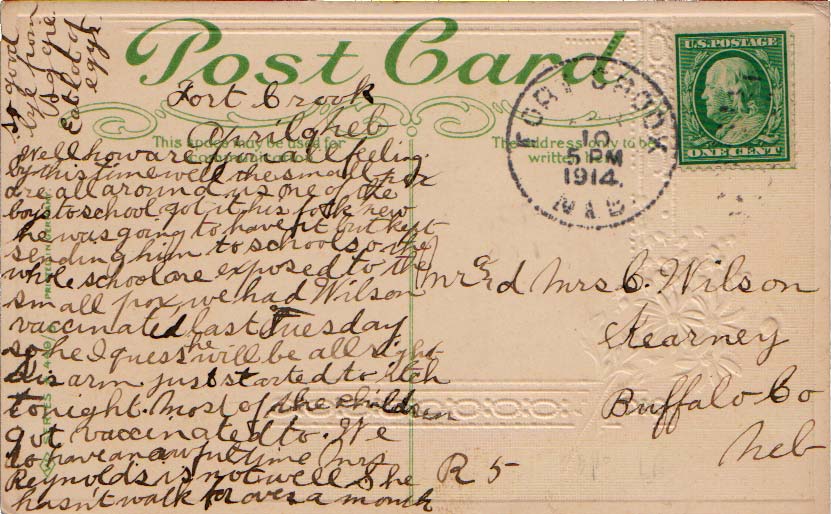 Post Card
This space may be used for
The address only to be
written
U.S. POSTAGE
ONE CENT
FORT CROOK
10
5 PM
1914
NEB.
Fort Crook
April 9 Neb
Well how are you all feeling
by this time well the small pox
are all around us one of the
boys to school got it his folk new
he was going to have it but kept
sending him to school so the
whole school are exposed to the
small pox, we had Wilson
vaccinated last Tuesday
so he I guess he will be all right
his arm just started to itch
tonight. Most of the children
got vaccinated to. We
to have an awful time Mrs
Reynolds is not well She
hasn't walk for over a month
so good
Eat lot of
eggs
Mr and Mrs C. Wilson
Kearney
Buffalo Co
Neb
R 5